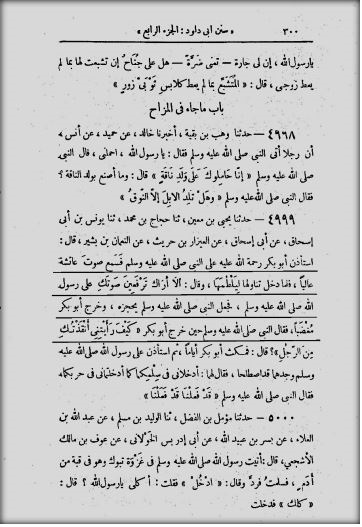 ٣٠٠ « سنن أبي داود : الجزء الرابع »
يارسول الله ، إن لى جارة — تعنى ضَرَّةً — هل علىَّ جُنَاحٌ إن تشبعت لها بما لم
يعط زوجى ، قال : « الْمُتَشَبِّعُ بما لم يعط كلابس ثَوْبَىْ زورٍ »
باب ماجاء فى المزاح
٤٩٦٨ — حدثنا وهب بن بقية ، أخبرنا خالد ، عن حميد ، عن أنس ،
أن رجلا أتى النبى صلى الله عليه وسلم فقال : يا رسول الله ، احملنى ، قال النبى
صلى الله عليه وسلم « إنَّا حَامِلُوكَ عَلَى وَلَدِ نَاقَةٍ » قال : وما أصنع بولد الناقة ؟
فقال النبى صلى الله عليه وسلم « وَهَلْ تَلِدُ الابِلَ إلَّا النُّوقُ »
٤٩٩٩ — حدثنا يحيى بن معين ، ثنا حجاج بن محمد ، ثنا يونس بن أبى
إسحاق ، عن أبى إسحاق ، عن العيزار بن حريث ، عن النعمان بن بشير ، قال :
استأذن أبو بكر رحمة الله عليه على النبى صلى الله عليه وسلم فَسَمِعَ صوتَ عائشة
عاليًا ، فلما دخل تناولها لِيَلْطِمَهَا ، وقال : ألاَ أرَاكِ تَرْفَعِينَ صَوْتَكِ على رسول
الله صلى الله عليه وسلم ، فجعل النبى صلى الله عليه وسلم يحجزه ، وخرج أبو بكر
مُغْضَبًا ، فقال النبى صلى الله عليه وسلم حين خرج أبو بكر « كَيْفَ رَأَيْتِنِى أنْقَذْتُكِ
مِنَ الرَّجُلِ » ؟ قال : فمكث أبو بكر أياما ، ثم استأذن على رسول الله صلى الله عليه
وسلم وجدهما قد اصطلحا ، فقال لهما : أدخلانى فى سِلْمِكُمَا كما أدخلتمانى فى حربكما ،
فقال النبى صلى الله عليه وسلم « قَدْ فَعَلْنَا قَدْ فَعَلْنَا »
٥٠٠٠ — حدثنا مؤمل بن الفضل ، ثنا الوليد بن مسلم ، عن عبد الله بن
العلاء ، عن بسر بن عبيد الله ، عن أبى إدريس الخَوْلَانى ، عن عوف بن مالك
الأشجعى ، قال : أتيت رسول الله صلى الله عليه وسلم فى غَزْوَة تبوك وهو فى قبة من
أَدَمٍ ، فسلمتُ فردَّ وقال : « ادْخُلْ » فقلت : أكلى يارسول الله ؟ قال :
« كلك » فدخلت